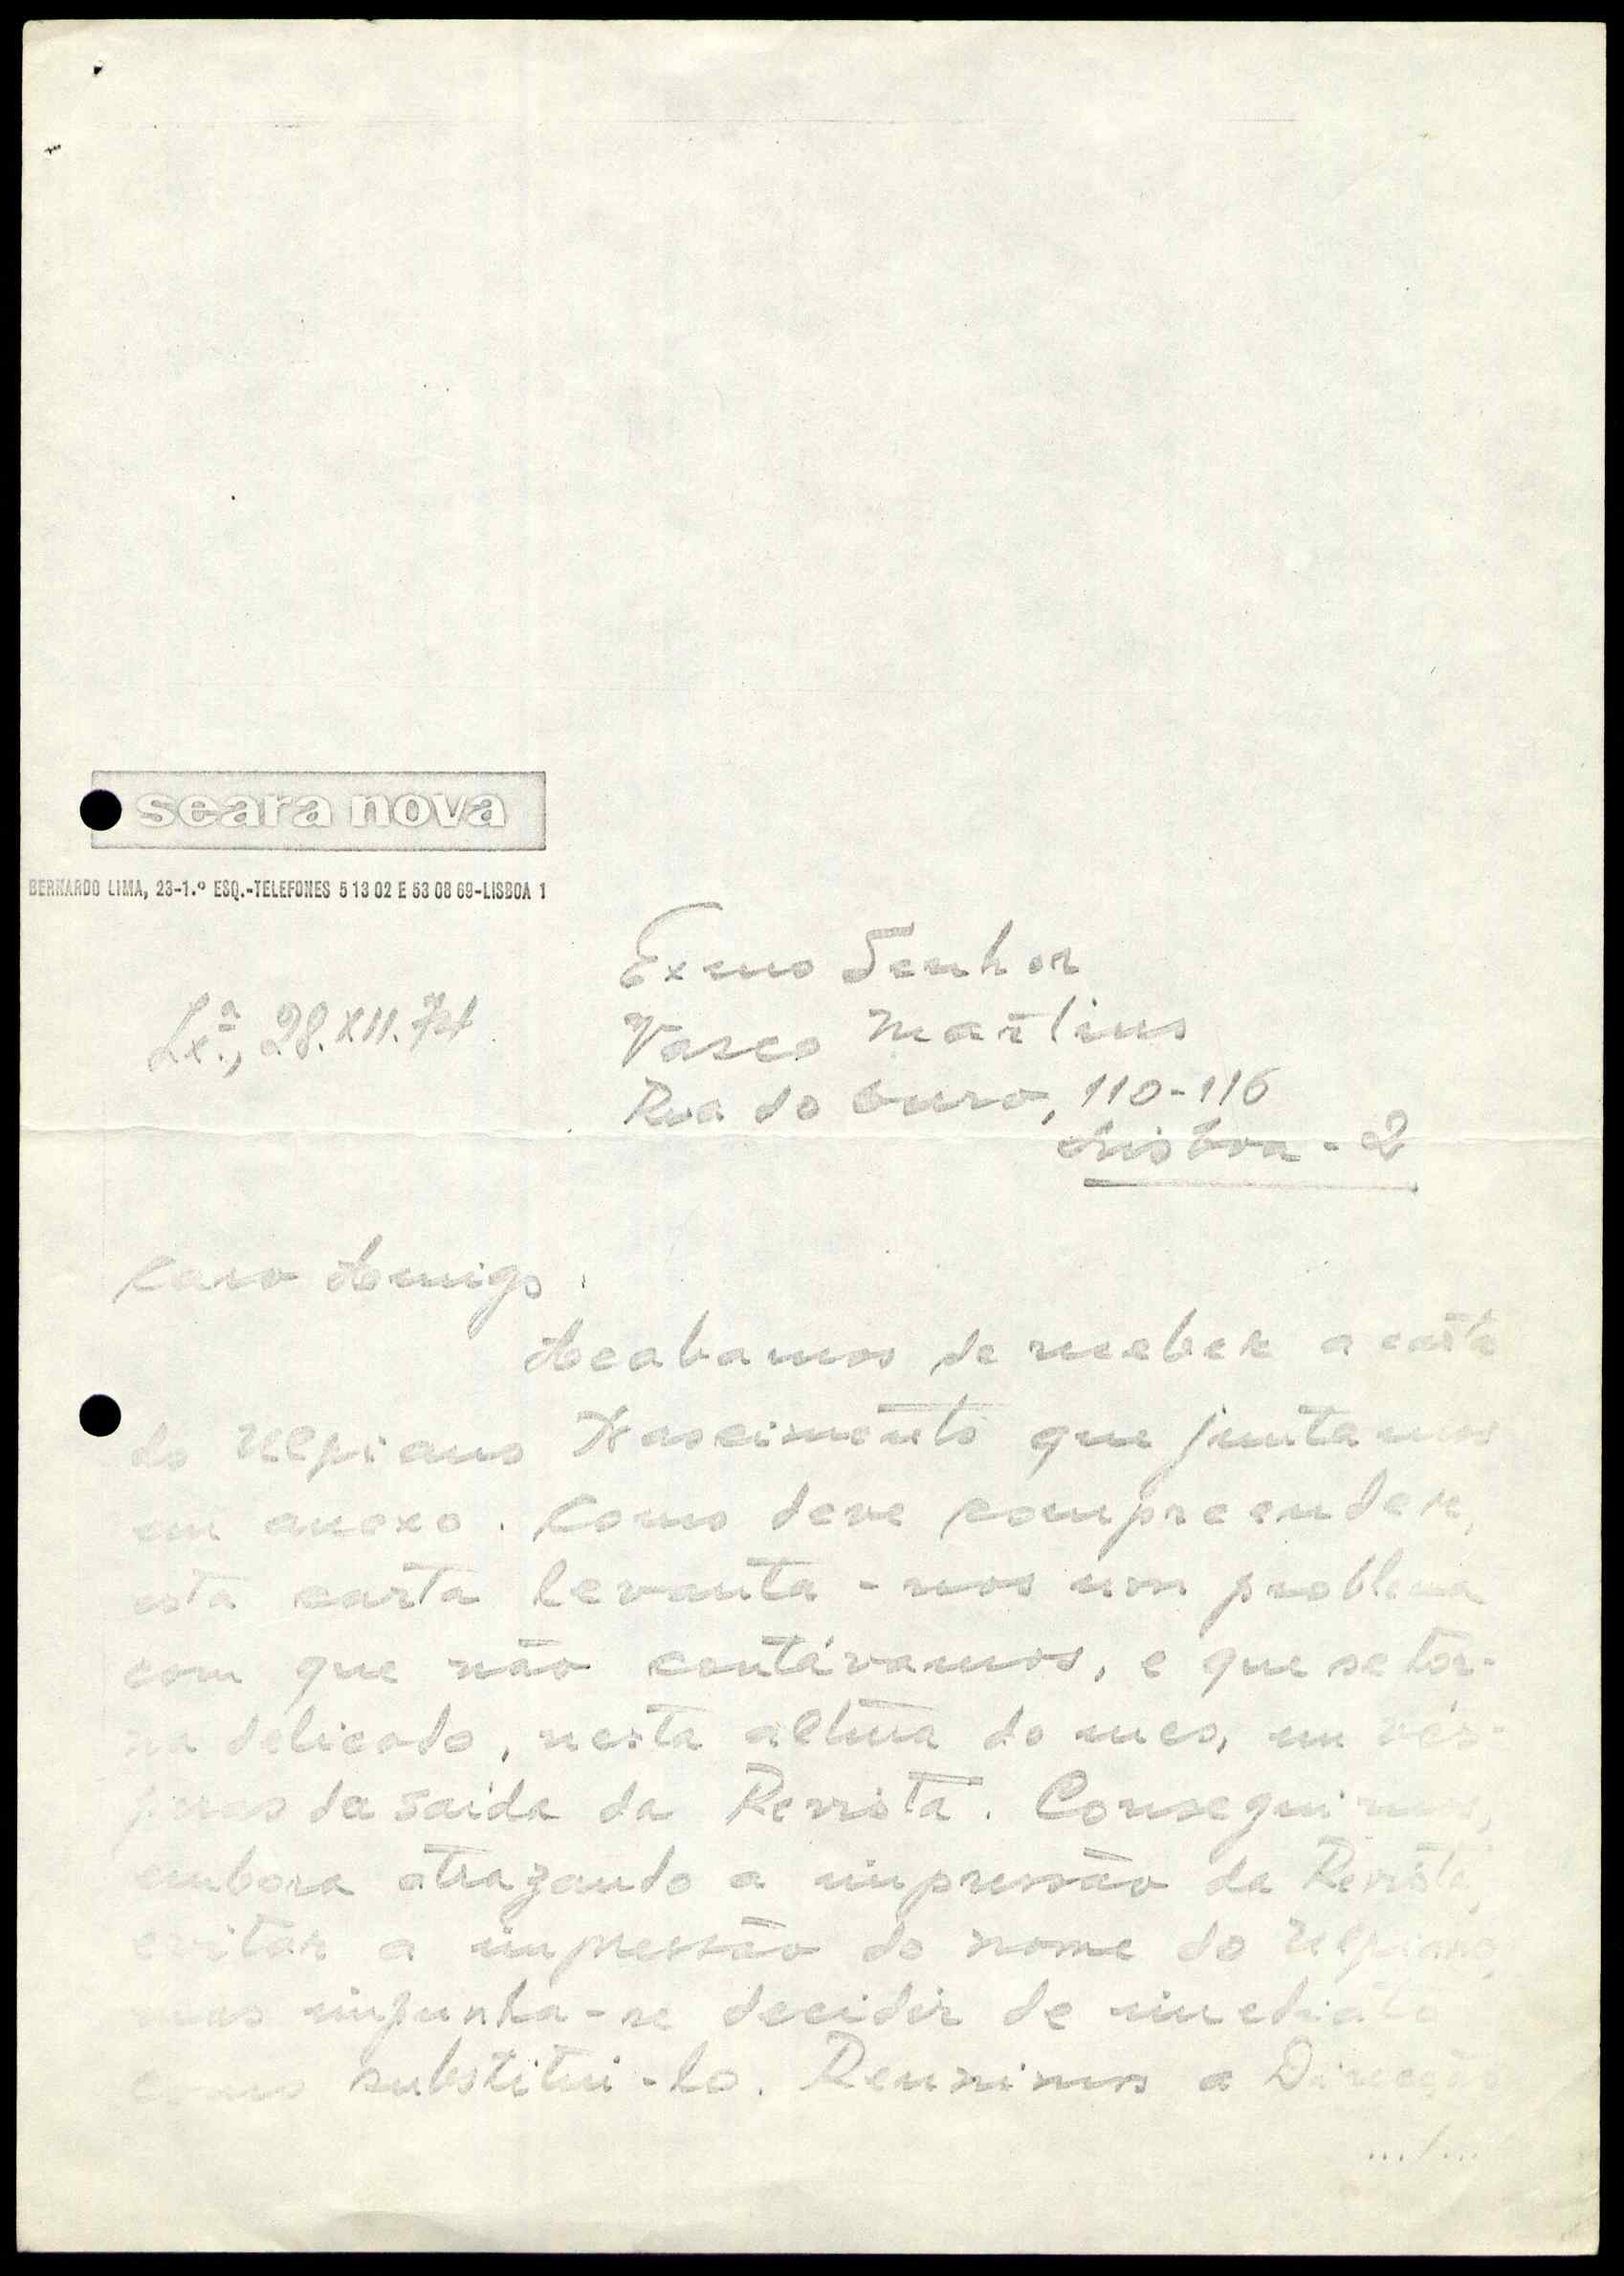 seara nova
BERNARDO LIMA, 23-1.º ESQ.-TELEFONES 5 13 02 E 53 08 69-LISBOA 1
Exmo Senhor
Lx.ª, 28.XII.74
Vasco Martins
Rua do Ouro, 110-116
Lisboa - 2
Caro Amigo:
Acabamos de receber a carta
do Ulpiano Nascimento que juntamos
em anexo. Como deve compreender,
esta carta levanta-nos um problema
com que não contávamos, e que se tor-
na delicado, nesta altura do mes, em vés-
peras da saida da Revista. Conseguimos,
embora atrazando a impressão da Revista,
evitar a impressão do nome do Ulpiano,
mas impunha-se decidir de imediato
como substitui-lo. Reunimos a Direcção
.../...